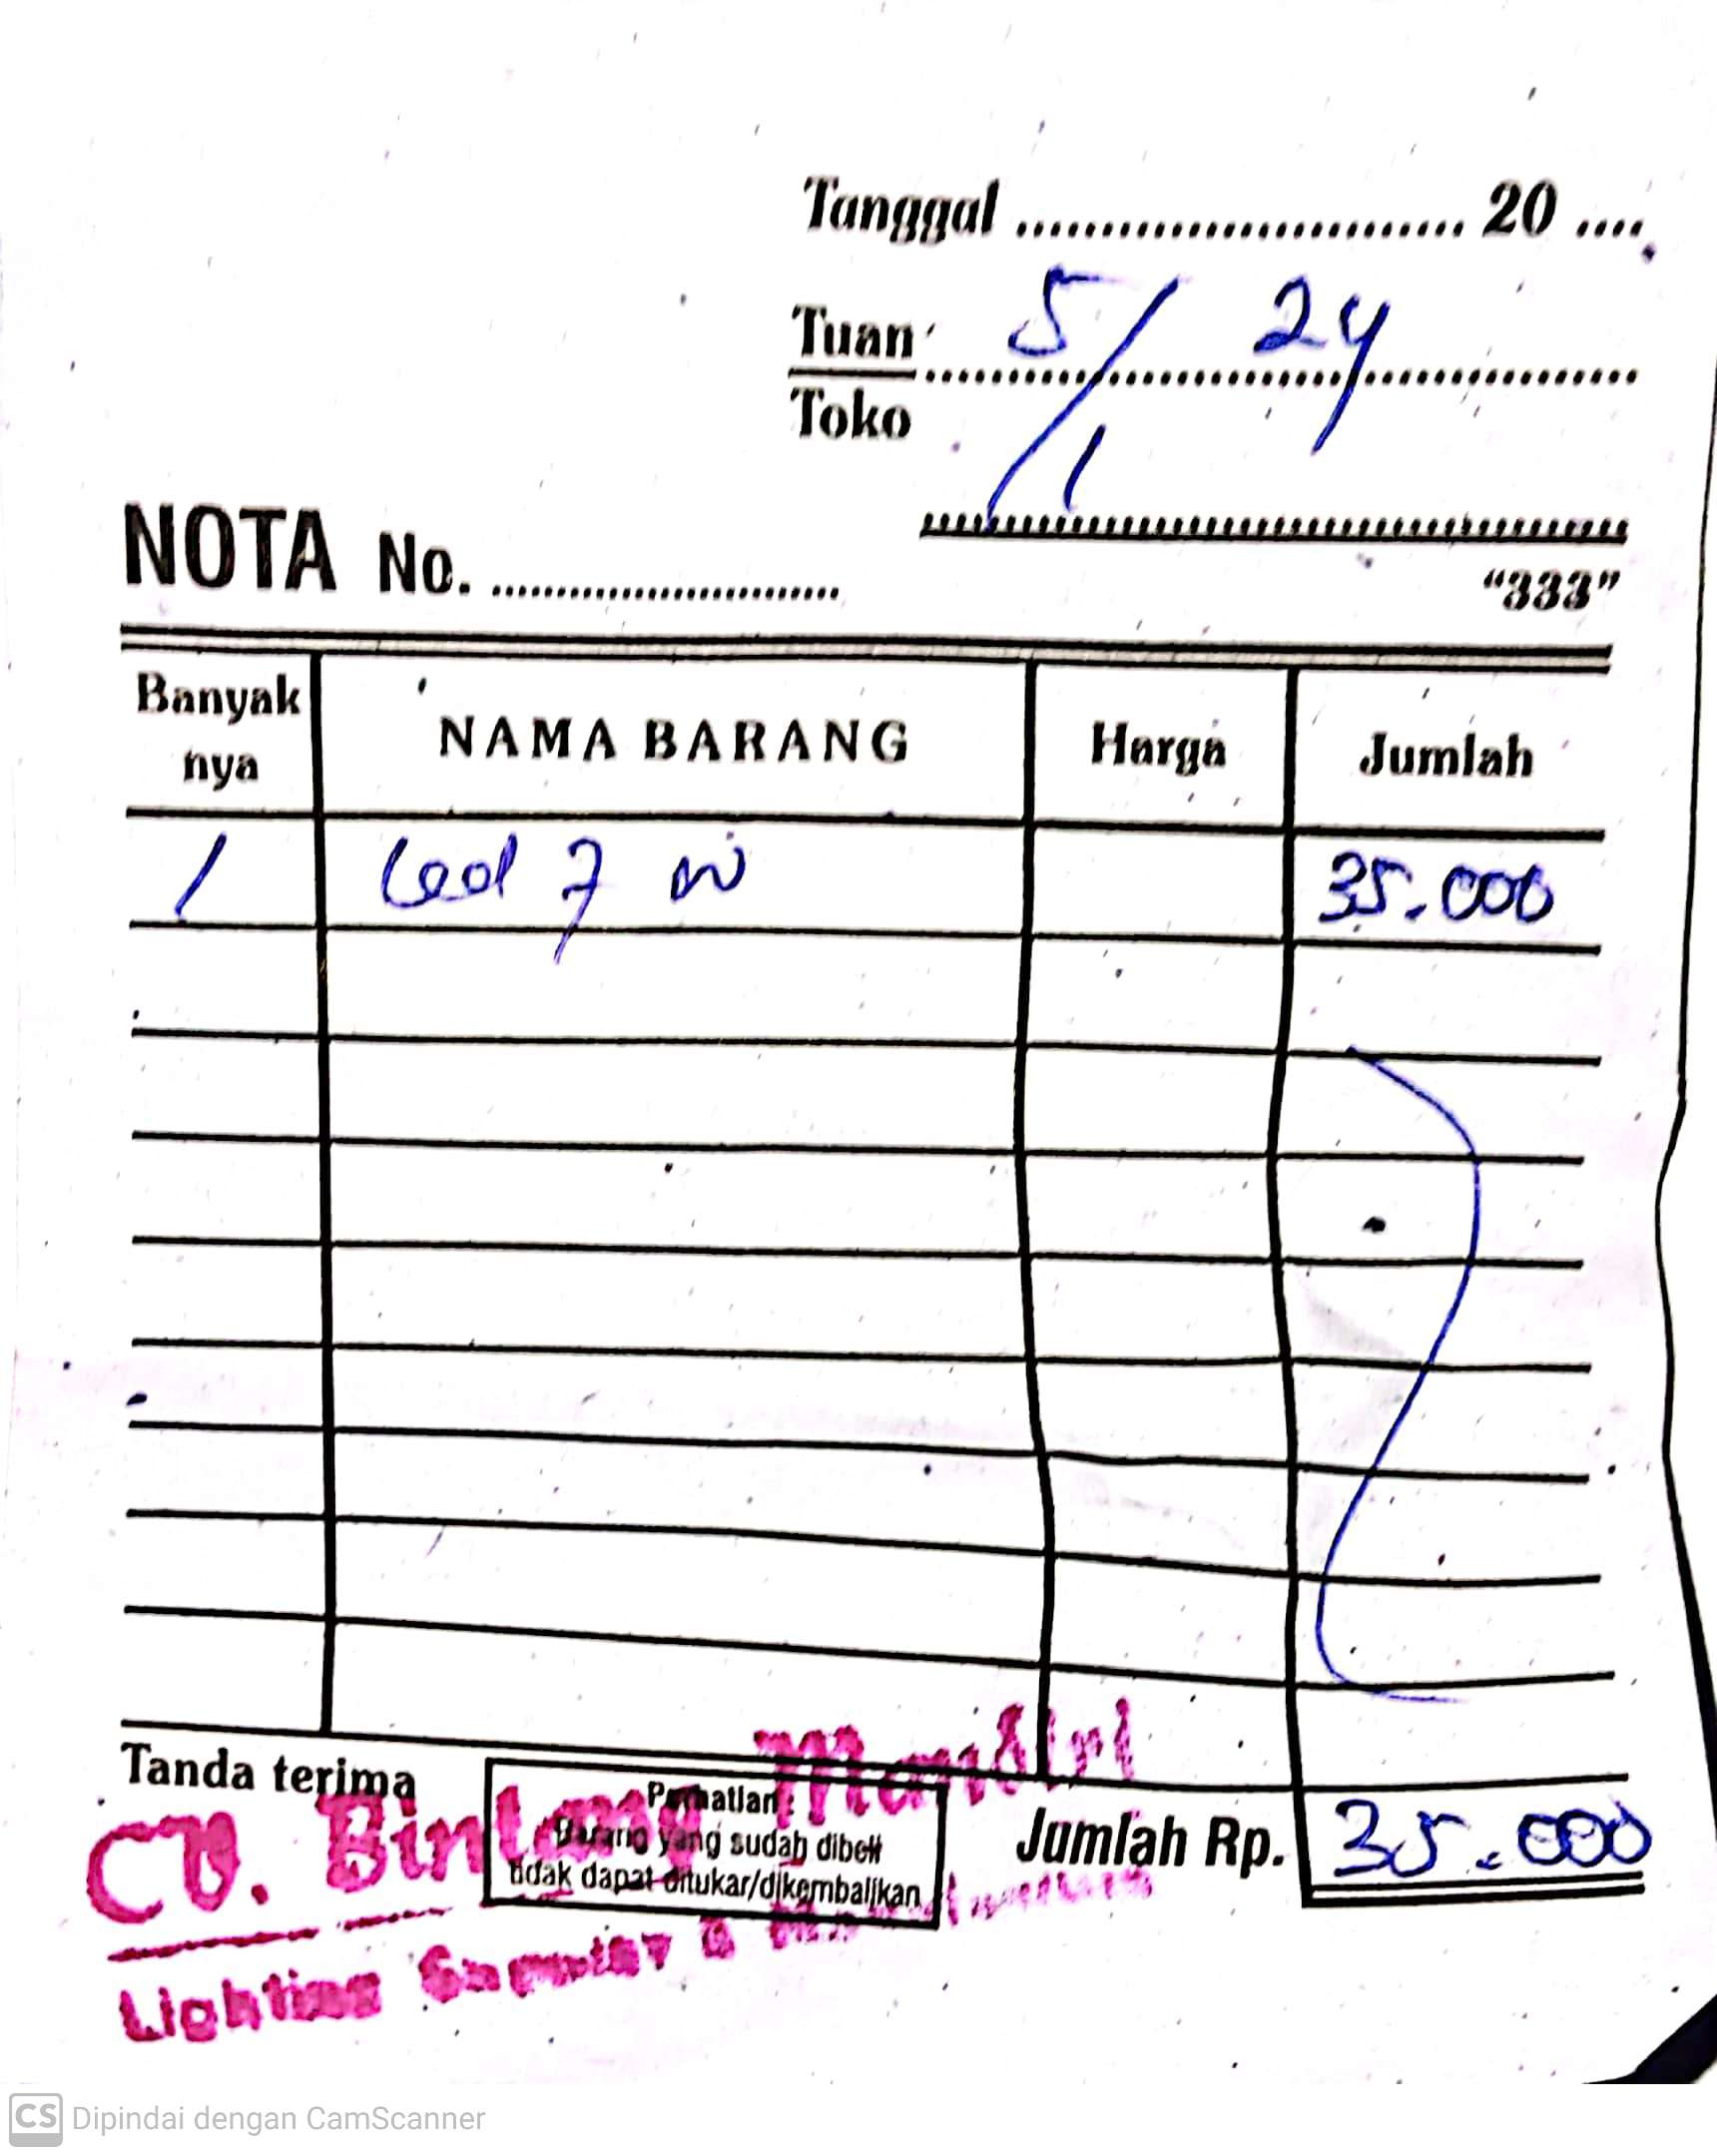 Tanggal ........................ 20 ....
Tuan 5/1 24
Toko
NOTA No. ........................
"333"
Banyak nya NAMA BARANG Harga Jumlah
1 Led 7 w 35.000
Tanda terima
Perhatian :
Barang yang sudah dibeli
tidak dapat ditukar/dikembalikan
Jumlah Rp. 35.000
CV. Bintang Mandiri
Lighting &
CS Dipindai dengan CamScanner